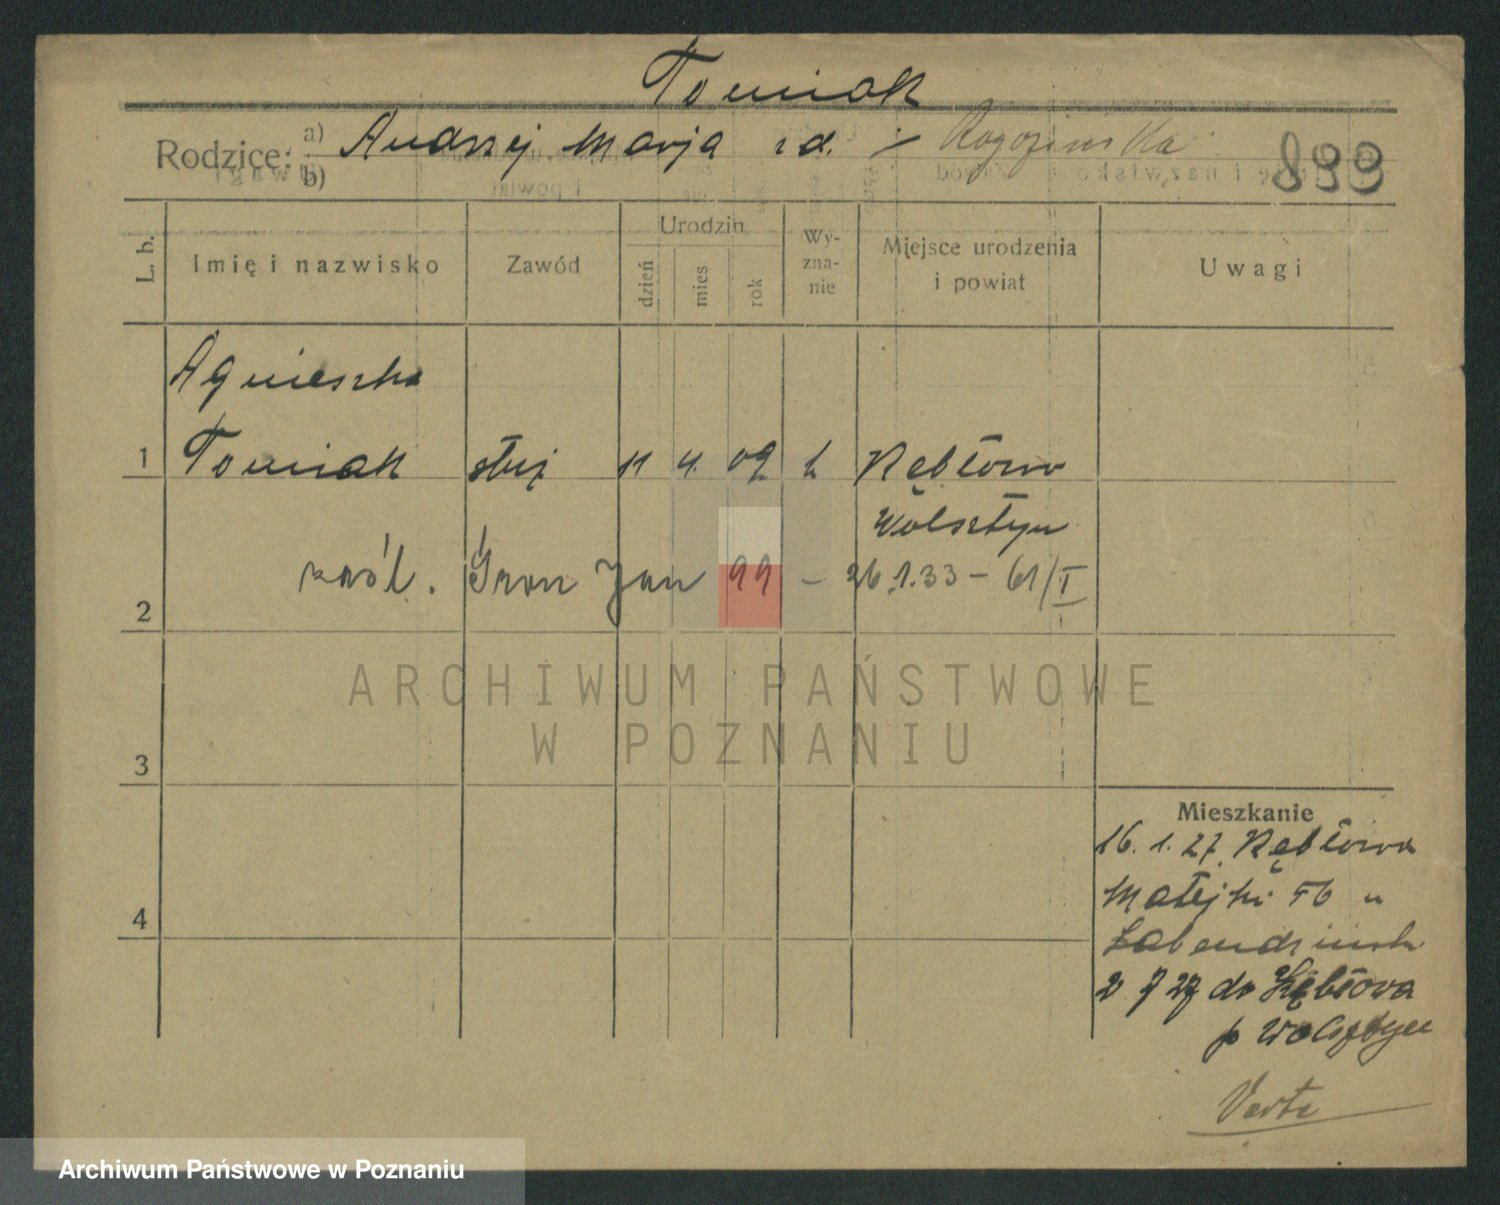 Tomiak
Rodzice: a) Andrzej Marja z d. Rogozińska
b)
899
L. b. Imię i nazwisko Zawód Urodzin dzień mies. rok Wyznanie Miejsce urodzenia i powiat Uwagi
Agnieszka
1 Tomiak służ 11 4. 09 k Kębłowo
Wolsztyn
2 zaśl. Jan 99 – 26.1.33 – 61/I
3
ARCHIWUM PAŃSTWOWE
W POZNANIU
4
Mieszkanie
16. 1. 27 Kębłowa
Matejki 56 u
2 7 27 do Kębłowa
p Wolsztyn
Verte
Archiwum Państwowe w Poznaniu